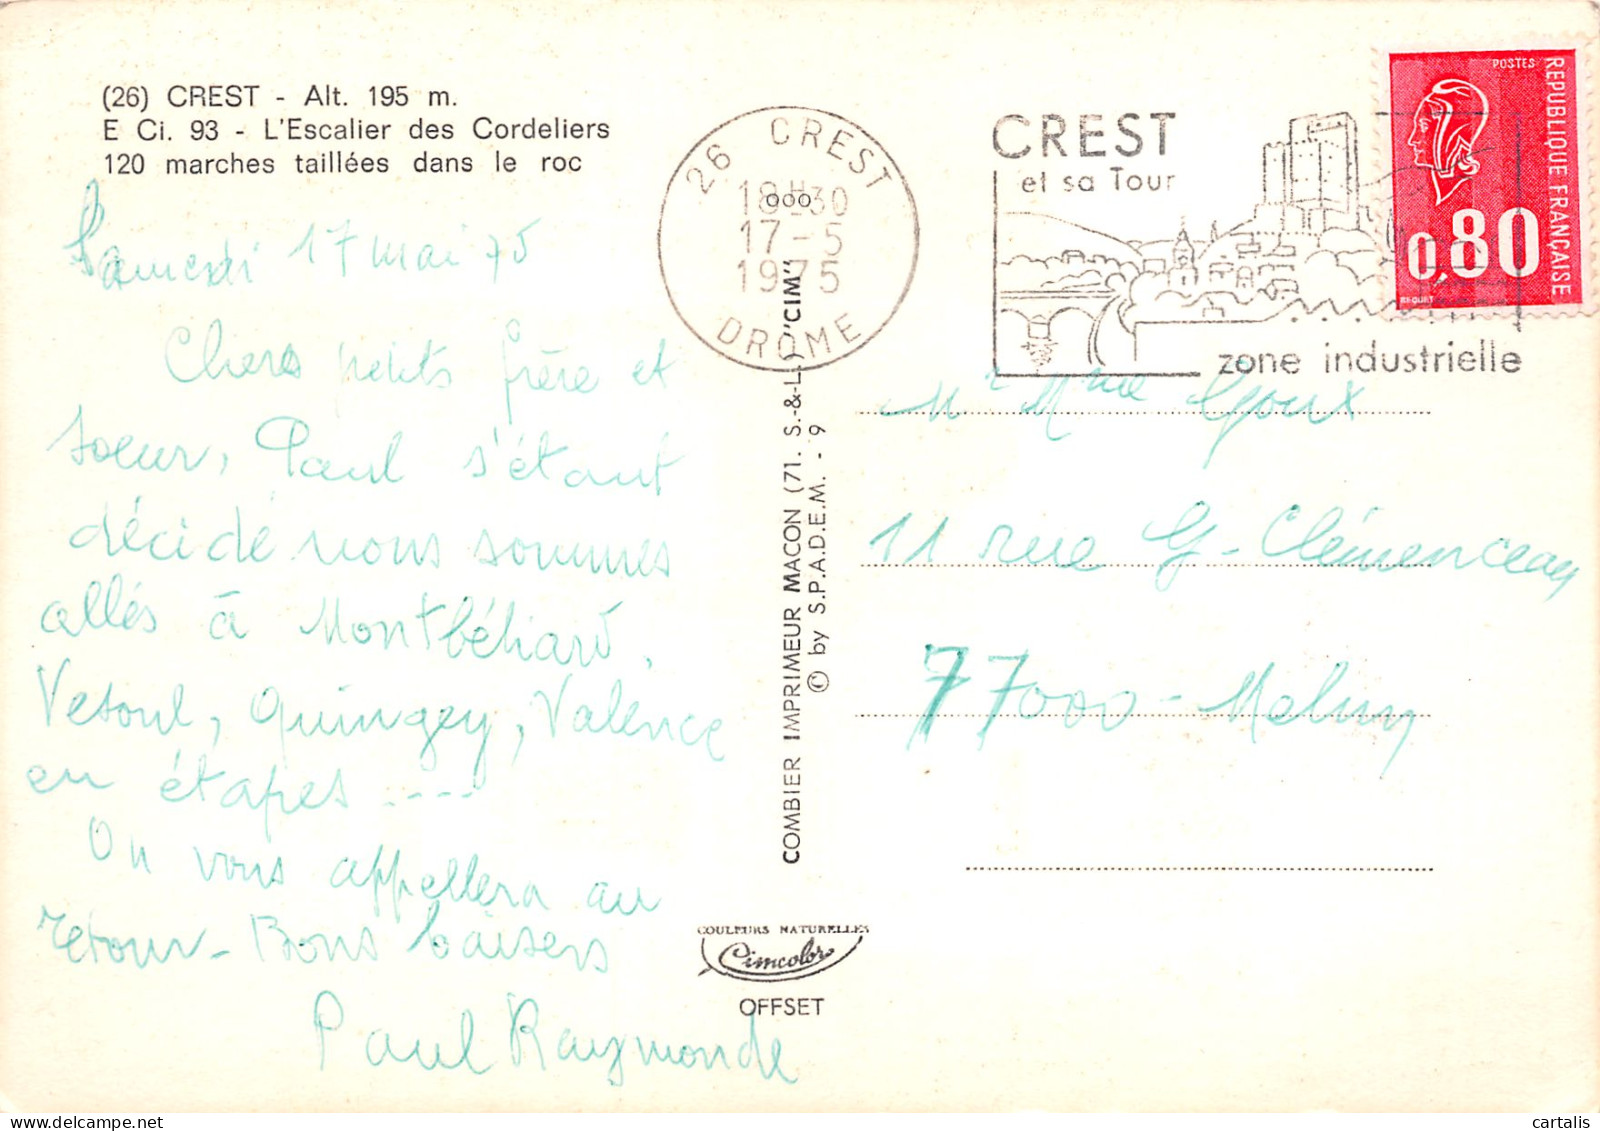 (26) CREST - Alt. 195 m.
E Ci. 93 - L'Escalier des Cordeliers
120 marches taillées dans le roc
Samedi 17 mai 75
Chers petits frère et
soeur, Paul s'étant
décidé nous sommes
allés à Montbéliard,
Vesoul, Quingey, Valence
en étapes ----
On vous appellera au
retour - Bons baisers
Paul Raymonde
26 CREST
18H30
17-5
1975
DROME
COMBIER IMPRIMEUR MACON (71. S.-&-L.) "CIM"
© by S.P.A.D.E.M. - 9
COULEURS NATURELLES
Cimcolor
OFFSET
CREST
et sa Tour
zone industrielle
POSTES
REPUBLIQUE FRANÇAISE
0,80
BEQUET
Mr Mme Goux
11 rue G-Clémenceau
77000 - Melun
cartalis